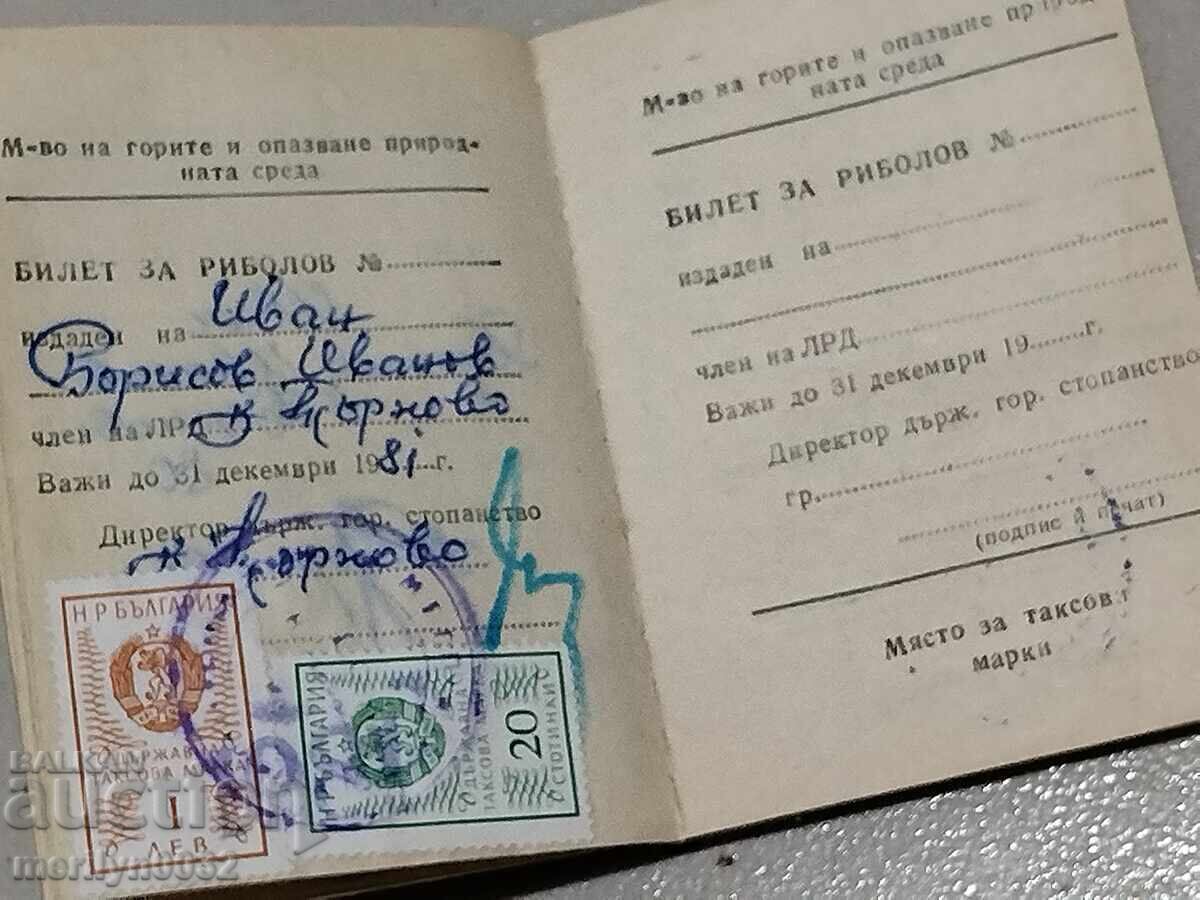 М-во на горите и опазване природ-
ната среда
БИЛЕТ ЗА РИБОЛОВ №
издаден на Иван
Борисов Иванов
член на ЛРД К Търново
Важи до 31 декември 1981 г.
Директор държ. гор. стопанство
Търново
Н Р БЪЛГАРИЯ
ДЪРЖАВНА
ТАКСОВА МАРКА
1
ЛЕВ
Н Р БЪЛГАРИЯ
ДЪРЖАВНА
ТАКСОВА МАРКА
20
СТОТИНКИ
М-во на горите и опазване природ-
ната среда
БИЛЕТ ЗА РИБОЛОВ №
издаден на
член на ЛРД
Важи до 31 декември 19 г.
Директор държ. гор. стопанство
гр.
(подпис и печат)
Място за таксови
марки
BALKAN
auction
merilyn0032